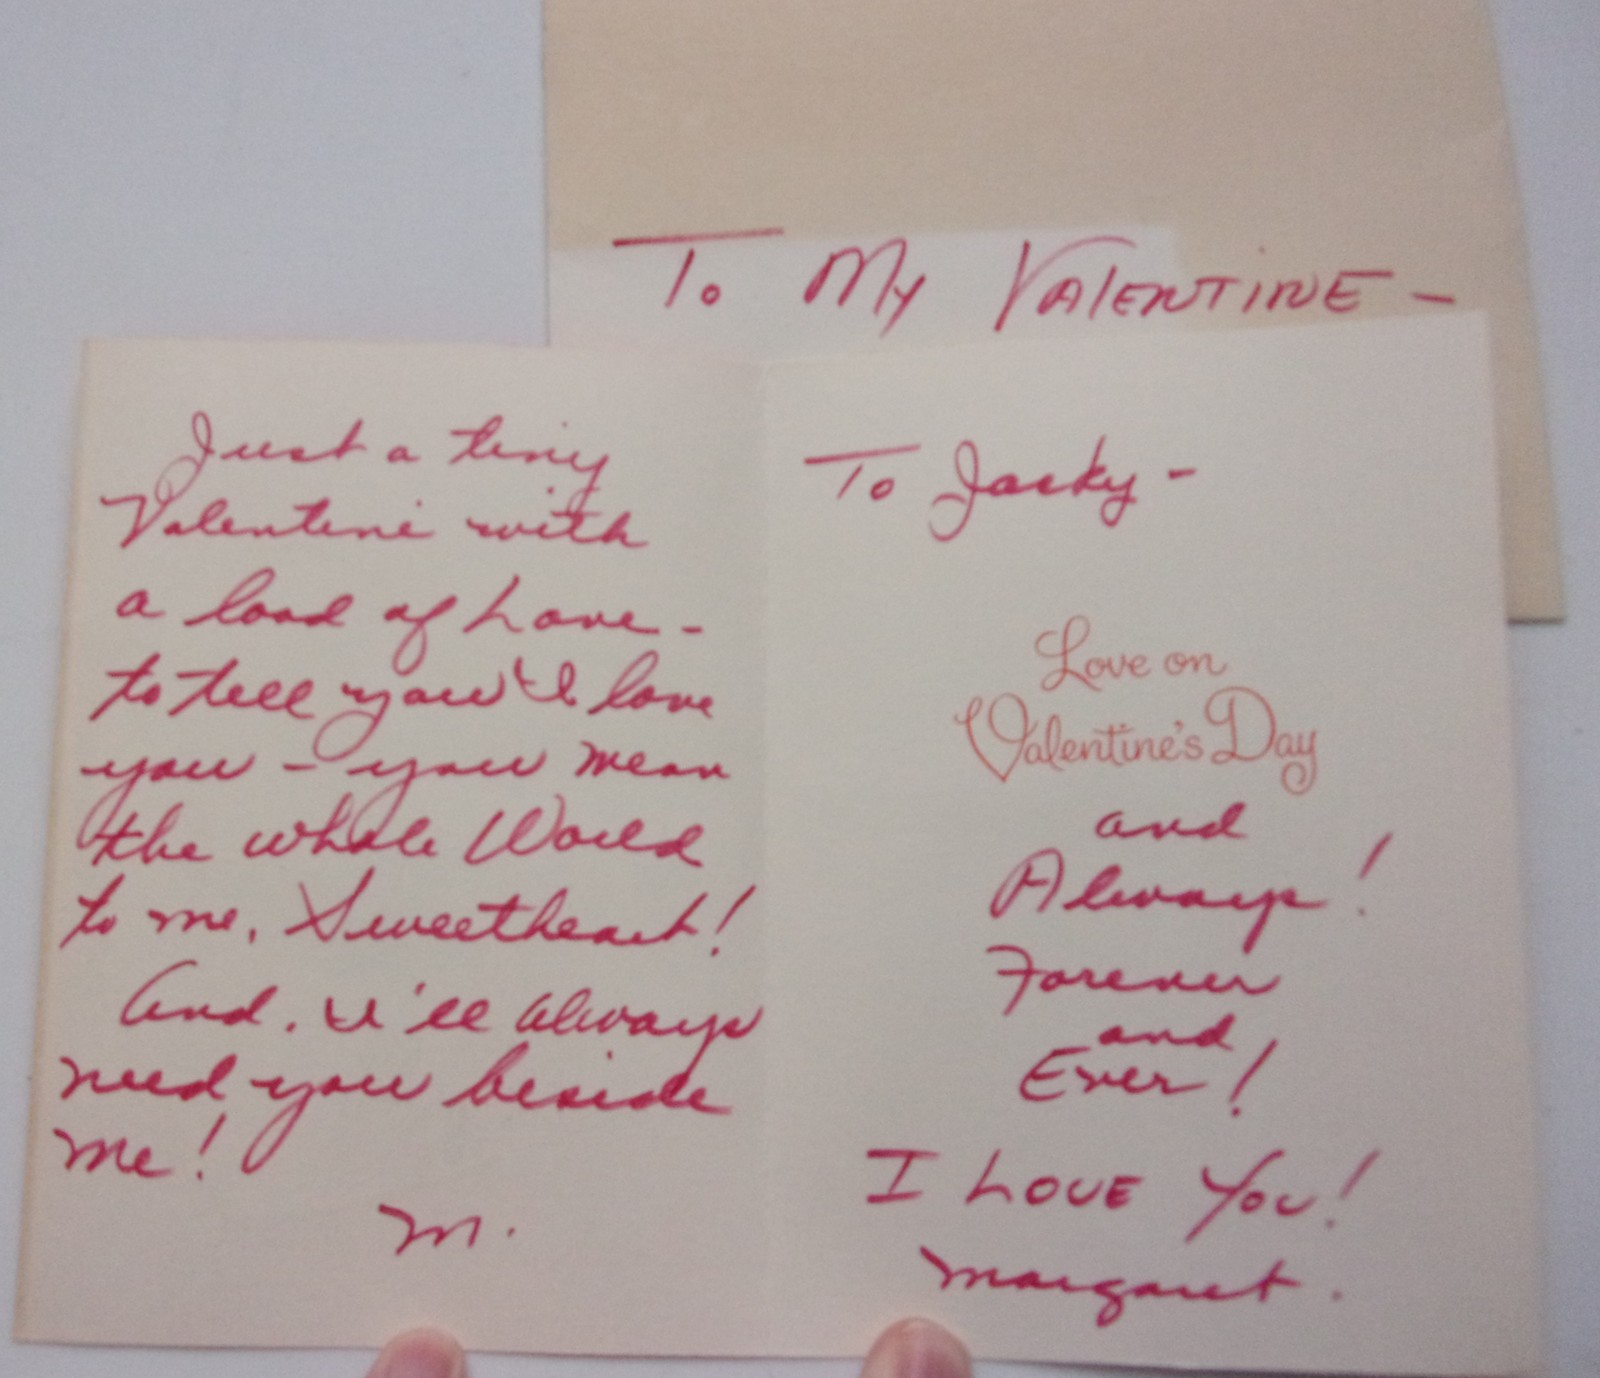 To My VALENTINE -
Just a tiny
Valentine with
a load of Love -
to tell you I love
you - you mean
the whole World
to me, Sweetheart!
And, I'll always
need you beside
me!
M.
To Jacky -
Love on
Valentine's Day
and
Always!
Forever
and
Ever!
I LOVE YOU!
Margaret.